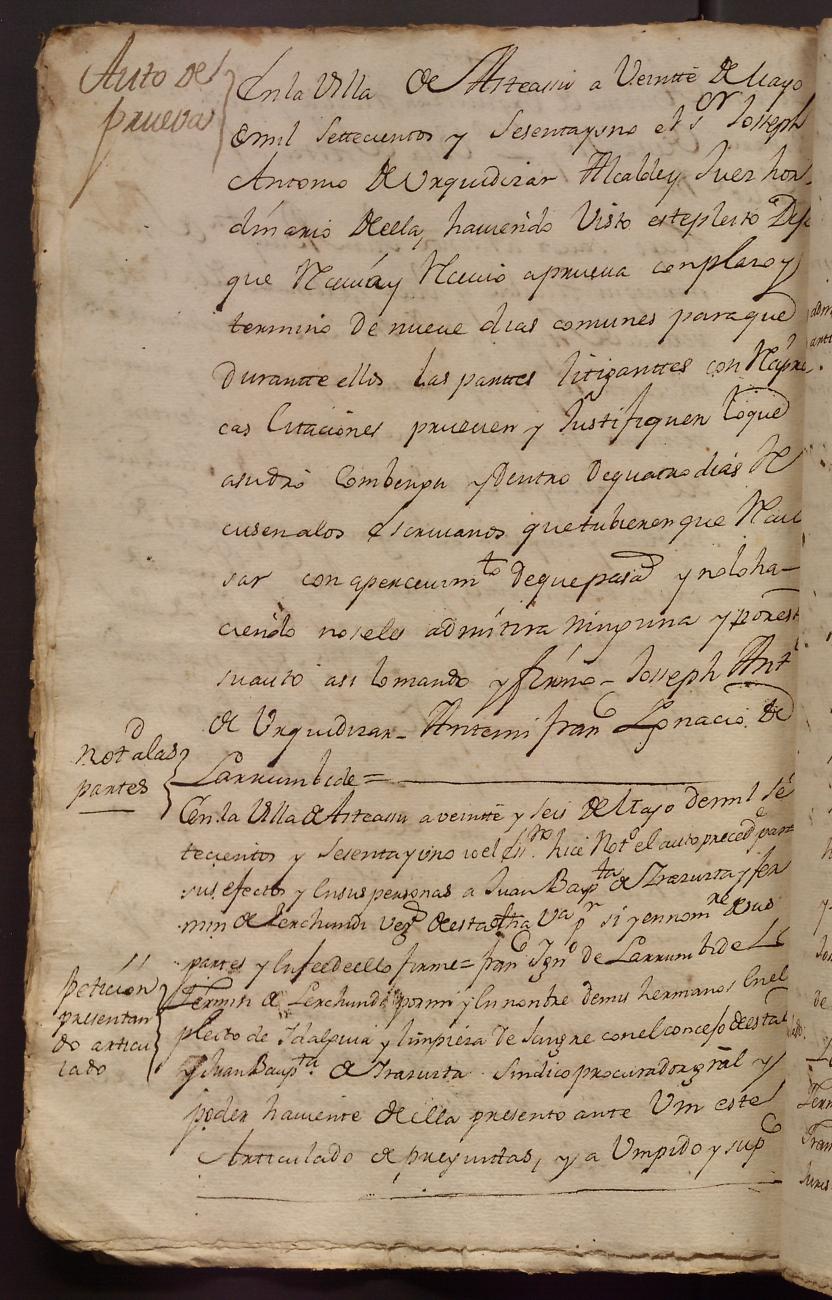 Auto de
prueva
En la Villa de Asteasu a Veintte de Mayo
de mil settecientos y Sesentayuno el Sor Joseph
Antonio de Urquidizar Alcaldey Juez hor
dinario de ella, haviendo Visto estepleito Dijo
que Recivia y Recivio aprueva conplazo y
termino de nueve dias comunes paraque
Durantte ellos las parttes litiganttes con Reçipro
cas Citaciones prueven y Justifiquen loque
asudro Combenga y dentro dequatro dias Re
cusen alos escrivanos quetubieren que Recu
sar con apercevimto dequepasado y noloha-
ciendo noseles admitira ninguna y por este
suauto asi lomando y firmo - Joseph Antto
de Urquidizar - Antemi franco Ignacio de
Larrumbide =
notd alas
partes
En la Villa de Asteasu aveintte y seis de Mayo demil se
tecientos y Sesentayuno io el Essno hice Notd el auto precedte para
sus efectos y en sus personas a Juan Bapta de Irazusta y fer
min de Lerchundi vezs de esta dha Va pr si y en nomre de sus
partes y en fee de ello firme = franco Igno de Larrumbide
Peticion
presentan
do articu
lado
Fermin de Lerchundi por mi y en nonbre de mis hermanos en el
pleito de Idalguia y limpieza de Sangre con el concejo de esta
y Juan Bapta de Irazusta Sindico procurador gral y
poder haviente de ella presento ante Vm este
Articulado de preguntas, y a Vm pido y supco